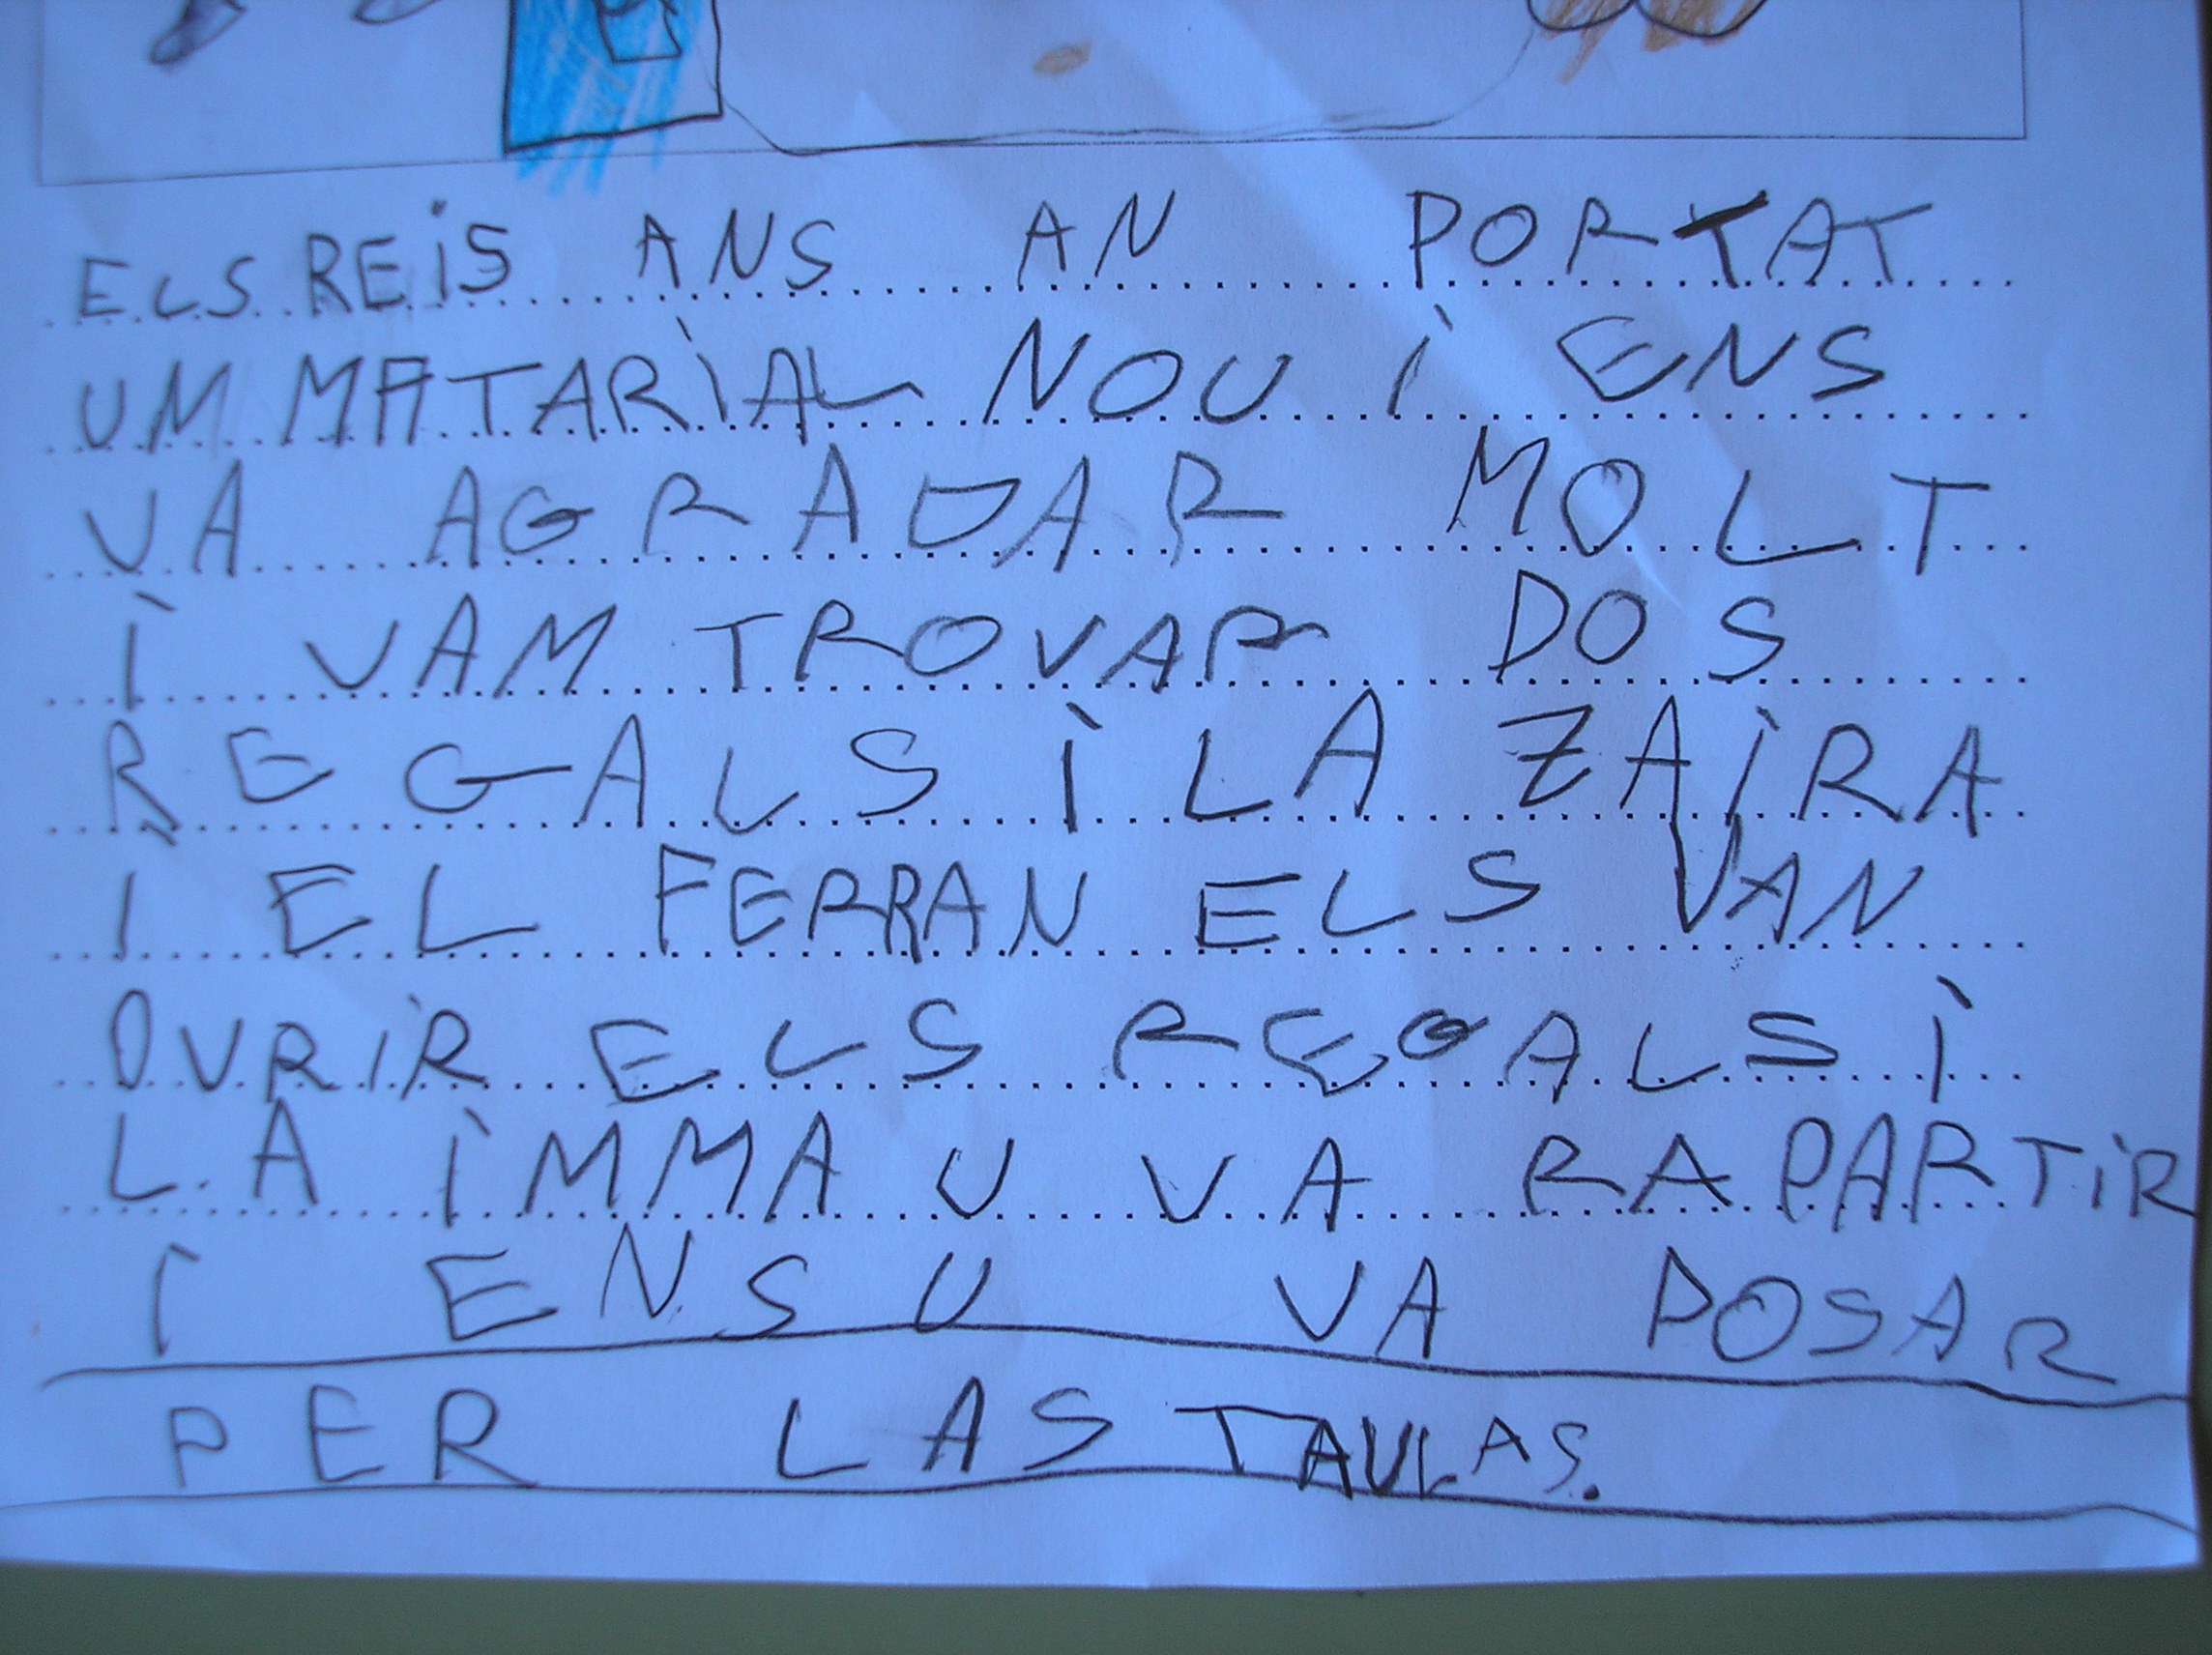 ELS REIS ANS AN PORTAT
UM MATARIAL NOU I ENS
VA AGRADAR MOLT
I VAM TROVAR DOS
REGALS I LA ZAIRA
I EL FERRAN ELS VAN
OVRIR ELS REGALS I
LA IMMA U VA RAPARTIR
I ENS U VA POSAR
PER LAS TAULAS.